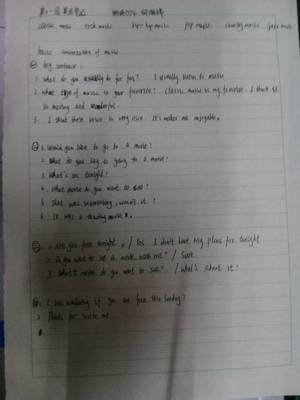 classic music rock music hip-hop music pop music country music jazz music
music
key sentence
1. What do you usually do for fun? I usually listen to music
2. What type of music is your favorite? classic music is my favorite. I think it
is moving and wonderful.
3. I think it very nice. It's makes me enjoyable.
1. Would you like to go to a movie?
2. What do you to going to a movie!
3. What's on tonight?
4. What movie do you want to see?
5. That was interesting, wasn't it!
6. It was a movie.
1. Are you free tonight. / Yes I don't have any plans for tonight
2. Do you want to see a movie with me? / Sure.
3. What movie do you want to see? / what's about it!
1. I was wondering if you are free this Sunday?
2. Thanks for me.